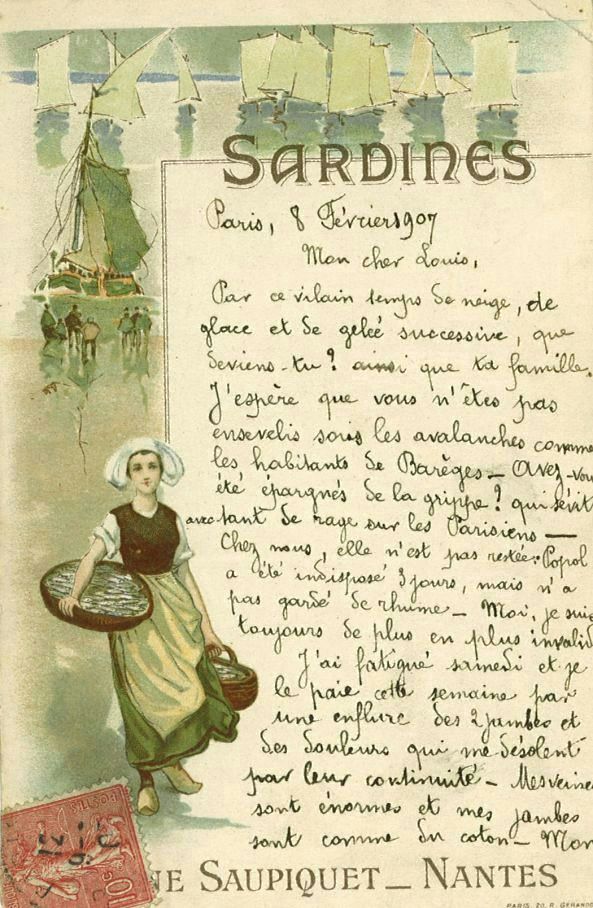 SARDINES
Paris, 8 Février 1907
Mon cher Louis,
Par ce vilain temps de neige, de
glace et de gelée successive, que
deviens-tu? ainsi que ta famille.
J'espère que vous n'êtes pas
ensevelis sous les avalanches comme
les habitants de Barèges – Avez-vou
été épargnés de la grippe? qui sévit
avec tant de rage sur les Parisiens —
Chez nous, elle n'est pas restée. Popol
a été indisposé 3 jours, mais n'a
pas gardé de rhume – Moi, je suis
toujours de plus en plus invalid
J'ai fatigué samedi et je
le paie cette semaine par
une enflure des 2 jambes et
des douleurs qui me désolent
par leur continuité – Mes veines
sont énormes et mes jambes
sont comme du coton – Mon
NE SAUPIQUET _ NANTES
POSTES
10
PARIS, 20, R. GERANDO